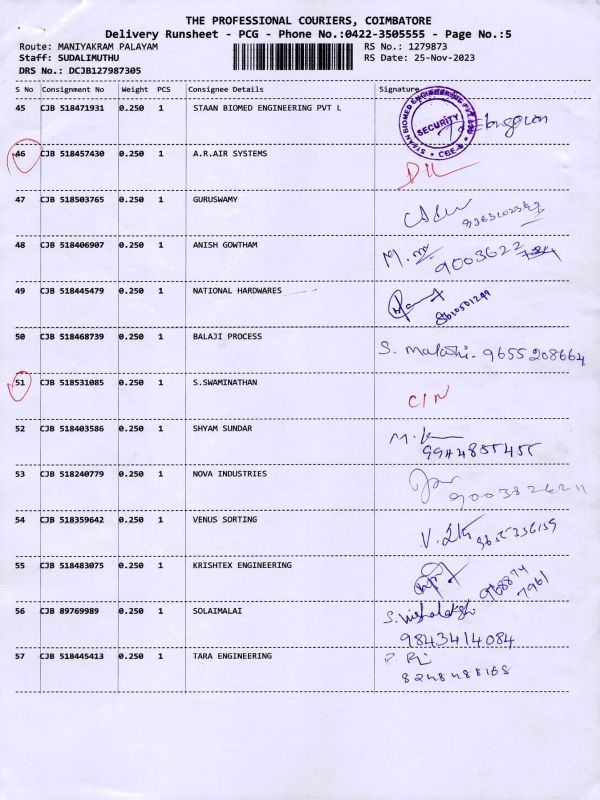 THE PROFESSIONAL COURIERS, COIMBATORE
Delivery Runsheet - PCG - Phone No.:0422-3505555 - Page No.:5
Route: MANIYAKRAM PALAYAM RS No.: 1279873
Staff: SUDALIMUTHU RS Date: 25-Nov-2023
DRS No.: DCJB127987305
S No Consignment No Weight PCS Consignee Details Signature
45 CJB 518471931 0.250 1 STAAN BIOMED ENGINEERING PVT L
STAAN BIOMED ENGINEERING SECURITY CBE
46 CJB 518457430 0.250 1 A.R.AIR SYSTEMS DL
47 CJB 518503765 0.250 1 GURUSWAMY
48 CJB 518406907 0.250 1 ANISH GOWTHAM 9003622
49 CJB 518445479 0.250 1 NATIONAL HARDWARES
50 CJB 518468739 0.250 1 BALAJI PROCESS S. Malathi - 9655208664
51 CJB 518531085 0.250 1 S.SWAMINATHAN CIN
52 CJB 518403586 0.250 1 SHYAM SUNDAR
9944855455
53 CJB 518240779 0.250 1 NOVA INDUSTRIES
54 CJB 518359642 0.250 1 VENUS SORTING
55 CJB 518483075 0.250 1 KRISHTEX ENGINEERING
968874
7961
56 CJB 89769989 0.250 1 SOLAIMALAI S. Vishalakshi
9843414084
57 CJB 518445413 0.250 1 TARA ENGINEERING
8248488168